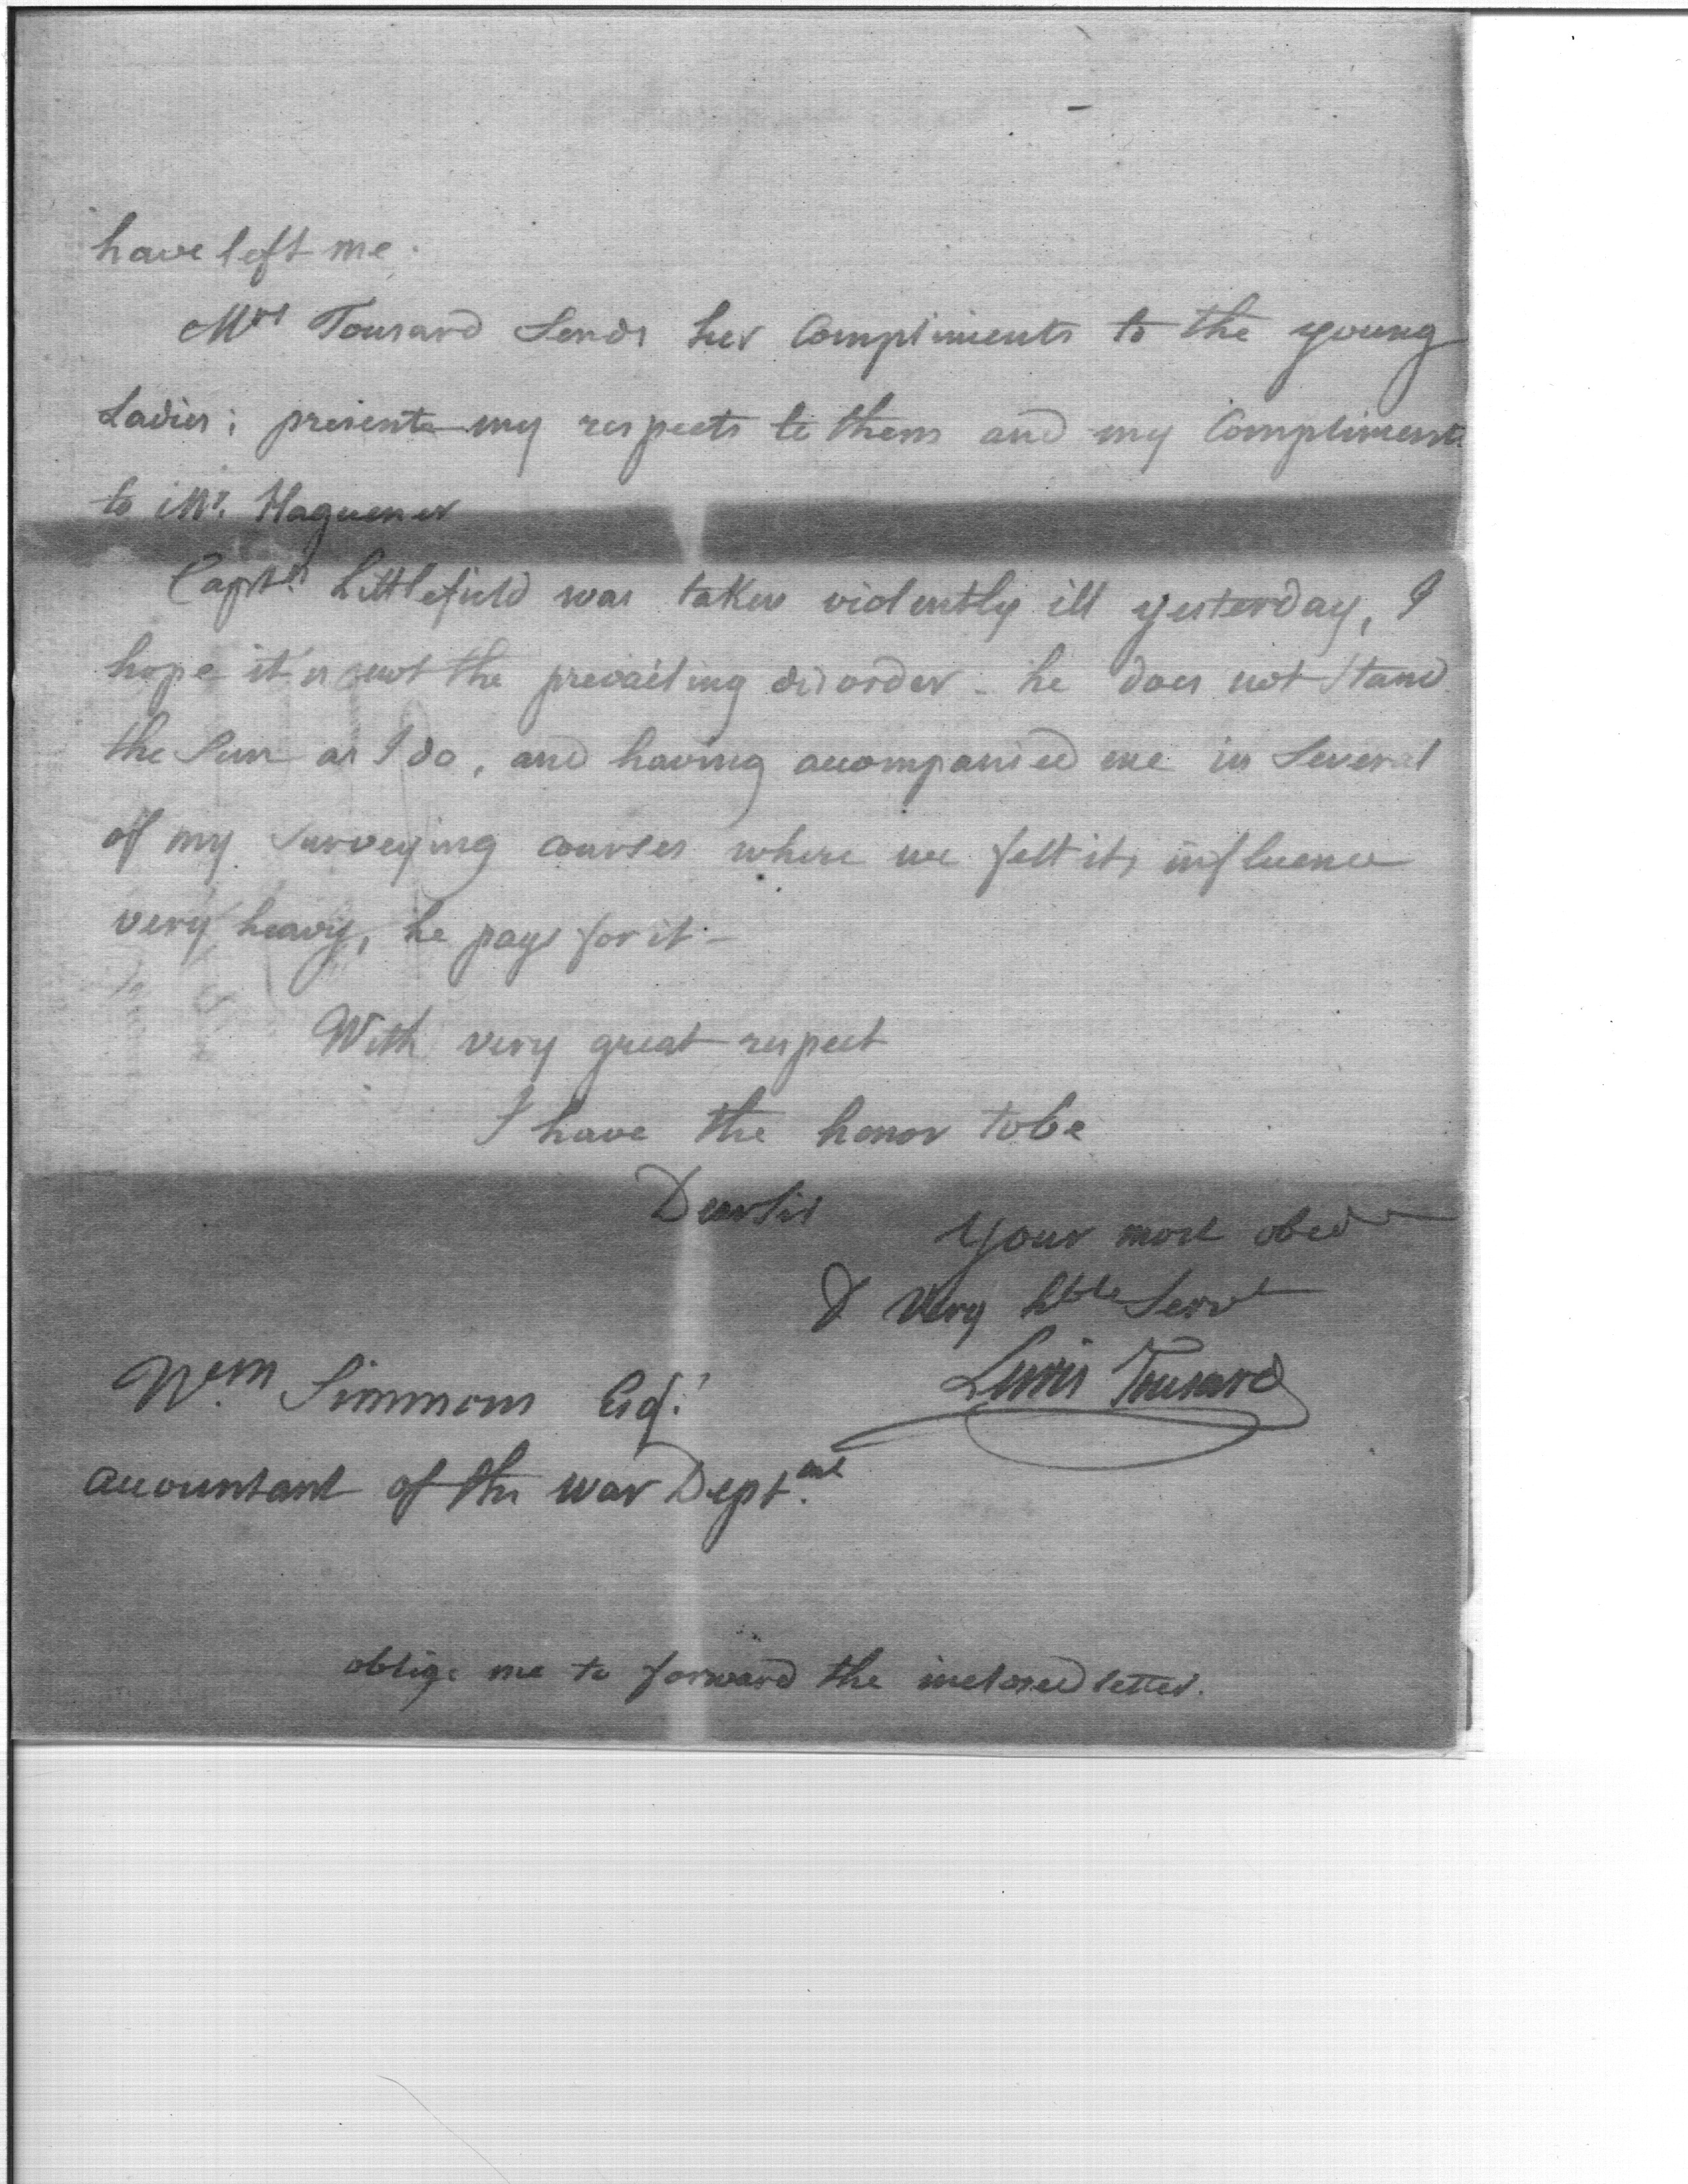 have left me.
Mrs Tousard Sends her Compliments to the young
Ladies; presente my respects to them and my Compliments
to Mr. Haguener
Captn. Littlefield was taken violently ill yesterday, I
hope it is not the prevailing disorder - he does not stand
the Sun as I do, and having accompanied me in Several
of my Surveying courses where we felt its influence
very heavy, he pays for it -
With very great respect
I have the honor to be
Dear Sir
Your most obed
& Very hble Servt
Lewis Tousard
Wm. Simmons Esqr.
accountant of the war Deptment.
oblige me to forward the inclosed letter.